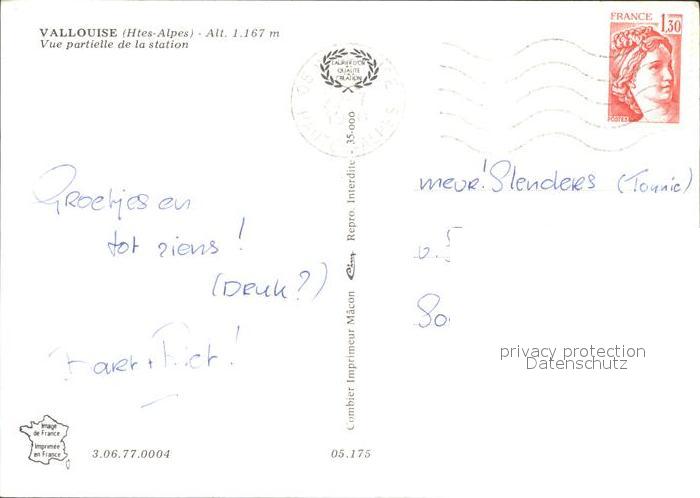 VALLOUISE (Htes-Alpes) - Alt. 1.167 m
Vue partielle de la station
FRANCE
1,30
POSTES
LAURIER D'OR
DE LA
QUALITÉ
CRÉATION
05
HAUTES ALPES
Groetjes en
tot ziens!
(Denk?)
Bart + Riet!
Combier Imprimeur Mâcon Cim Repro. Interdite - 35-000
meur! Slenders (Tonnie)
privacy protection
Datenschutz
Image
de France
Imprimée
en France
3.06.77.0004
05.175